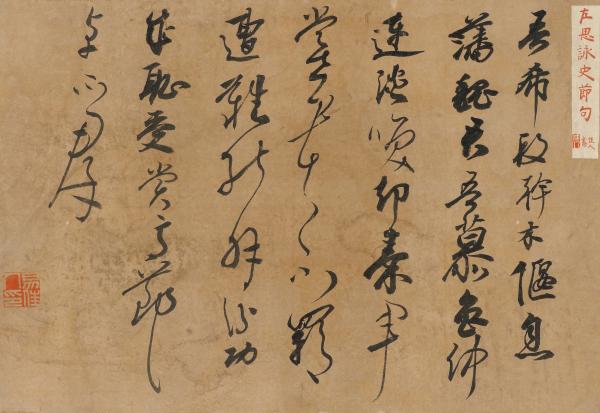 左思詠史節句
吾希段幹木偃息
藩魏君吾慕魯仲
連談笑卻秦軍
當世貴不羈
遭難能解紛功
成恥受賞高節
卓不群